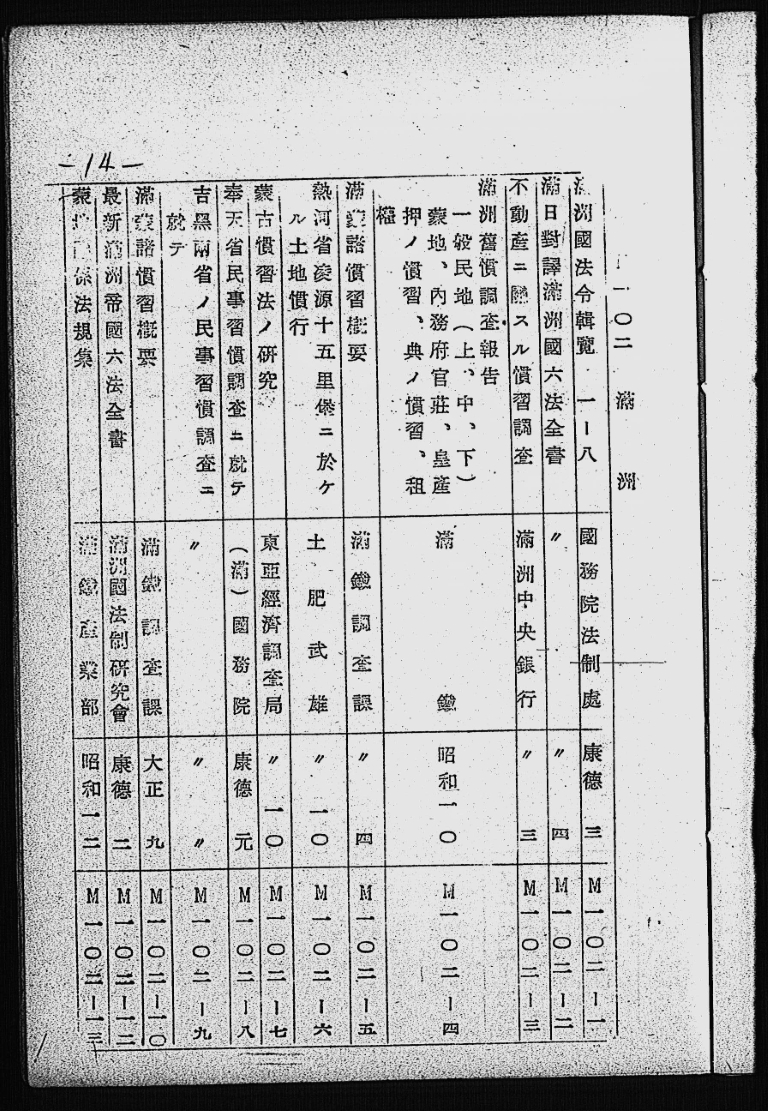 -14-
一〇二 滿洲
滿洲國法令輯覽 一ー八 國務院法制處 康德 三 M一〇二ー一
滿日對譯滿洲國六法全書 〃 〃 四 M一〇二ー二
不動產ニ關スル慣習調查 滿洲中央銀行 〃 三 M一〇二ー三
滿洲舊慣調查報告
一般民地(上、中、下)
蒙地、內務府官莊、皇產
押ノ慣習、典ノ慣習、租
權 滿鐵 昭和一〇 M一〇二ー四
滿蒙諸慣習槪要 滿鐵調查課 〃 四 M一〇二ー五
熱河省凌源十五里堡ニ於ケ
ル土地慣行 土肥武雄 〃 一〇 M一〇二ー六
蒙古慣習法ノ硏究 東亞經濟調查局 〃 一〇 M一〇二ー七
奉天省民事習慣調查ニ就テ (滿)國務院 康德 元 M一〇二ー八
吉黑兩省ノ民事習慣調查ニ
就テ 〃 〃 〃 M一〇二ー九
滿蒙諸慣習槪要 滿鐵調查課 大正 九 M一〇二ー一〇
最新滿洲帝國六法全書 滿洲國法制硏究會 康德 二 M一〇二ー一二
蒙地關係法規集 滿鐵產業部 昭和一二 M一〇二ー一三